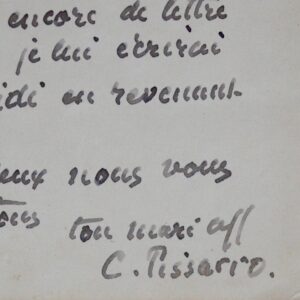 encore de lettre
je lui écrirai
idi en revenant
eux nous vous
tons
ton mari aff
C. Pissarro.